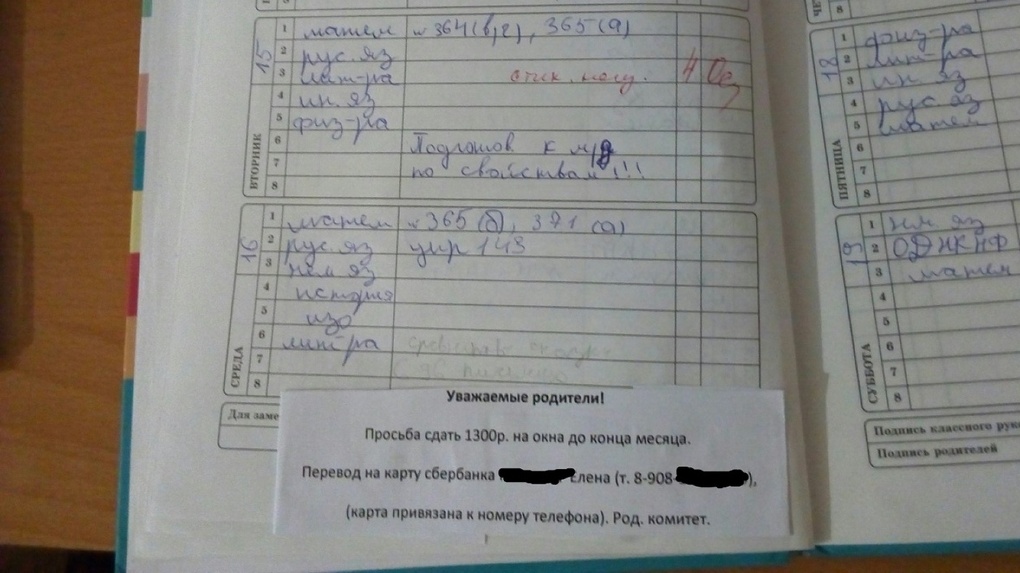 15
ВТОРНИК
1 матем № 364(в,г), 365(а)
2 рус. яз
3 лит-ра 4
4 ин. яз
5 физ-ра
6 Подготов к м/д
7 по свойствам!!!
8
16
СРЕДА
1 матем № 365(б), 371 (а)
2 рус. яз упр 143
3 нем яз
4 история
5 изо
6 лит-ра
7
8
Для заме
Уважаемые родители!
Просьба сдать 1300р. на окна до конца месяца.
Перевод на карту сбербанка Елена (т. 8-908- ),
(карта привязана к номеру телефона). Род. комитет.
8
18
ПЯТНИЦА
1 физ-ра
2 лит-ра
3 ин. яз
4 рус. яз
5 матем
6
7
8
19
СУББОТА
1 нем. яз
2 ОДНКНР
3 матем
4
5
6
7
8
Подпись классного рук
Подпись родителей